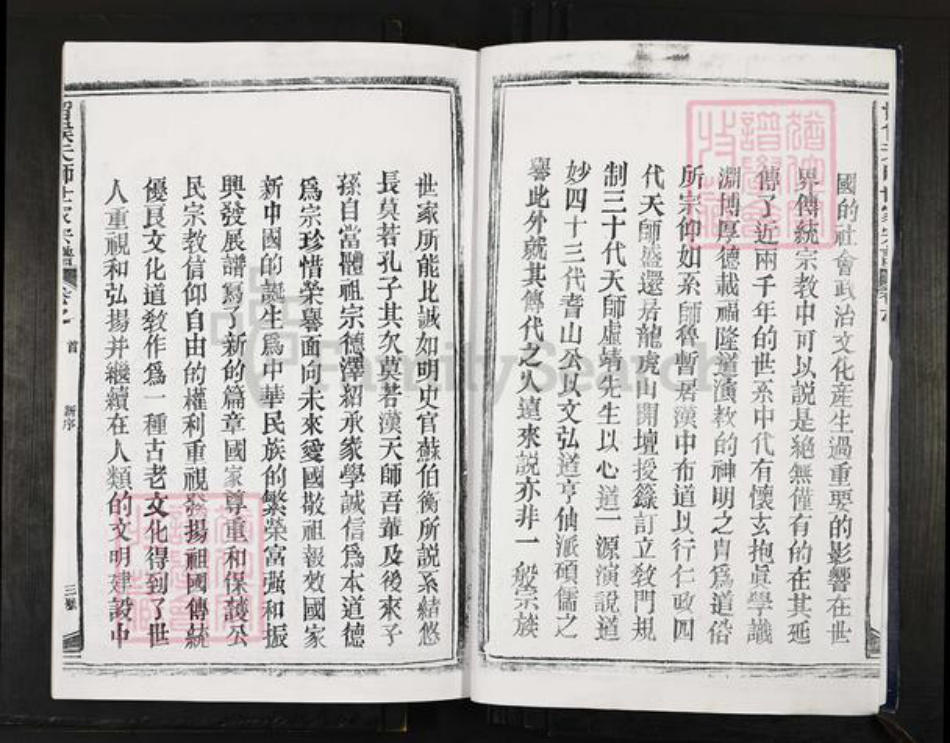 國的社會政治文化產生過重要的影響在世
界傳統宗教中可以説是絕無僅有的在其延
傳了近兩千年的世系中代有懷玄抱眞學識
淵博厚德載福隆道演教的神明之胄爲道俗
所宗仰如系師魯暫居漢中布道以行仁政四
代天師盛還居龍虎山開壇授籙訂立教門規
制三十代天師虛靖先生以心道一源演說道
妙四十三代耆山公以文弘道亨仙派碩儒之
譽此外就其傳代之久遠來説亦非一般宗族
世家所能比誠如明史官蘇伯衡所説系緒悠
長莫若孔子其次莫若漢天師吾輩及後來子
孫自當體祖宗德澤紹承家學誠信爲本道德
爲宗珍惜榮譽面向未來愛國敬祖報效國家
新中國的誕生爲中華民族的繁榮富强和振
興發展譜寫了新的篇章國家尊重和保護公
民宗教信仰自由的權利重視發揚祖國傳統
優良文化道敎作爲一種古老文化得到了世
人重視和弘揚并繼續在人類的文明建設中
天師世家宗譜
首
新序
三
FamilySearch